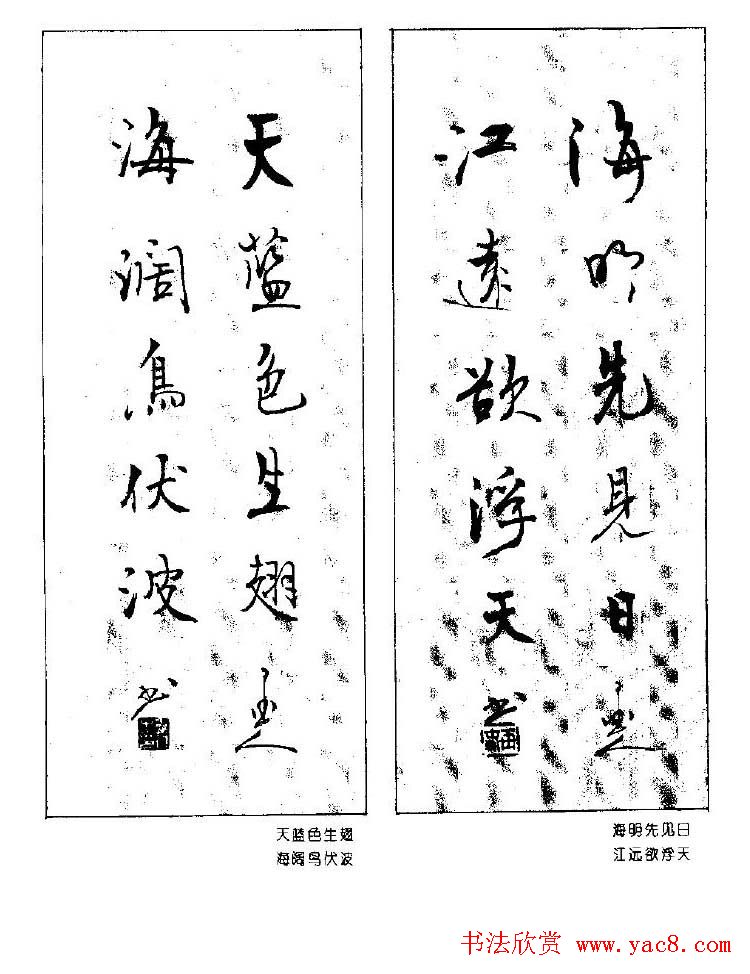 海明先見日
江遠欲浮天
书
天藍色生翅
海濶鳥伏波
书
海明先见日
江远欲浮天
天蓝色生翅
海阔鸟伏波
书法欣赏 www.yac8.com